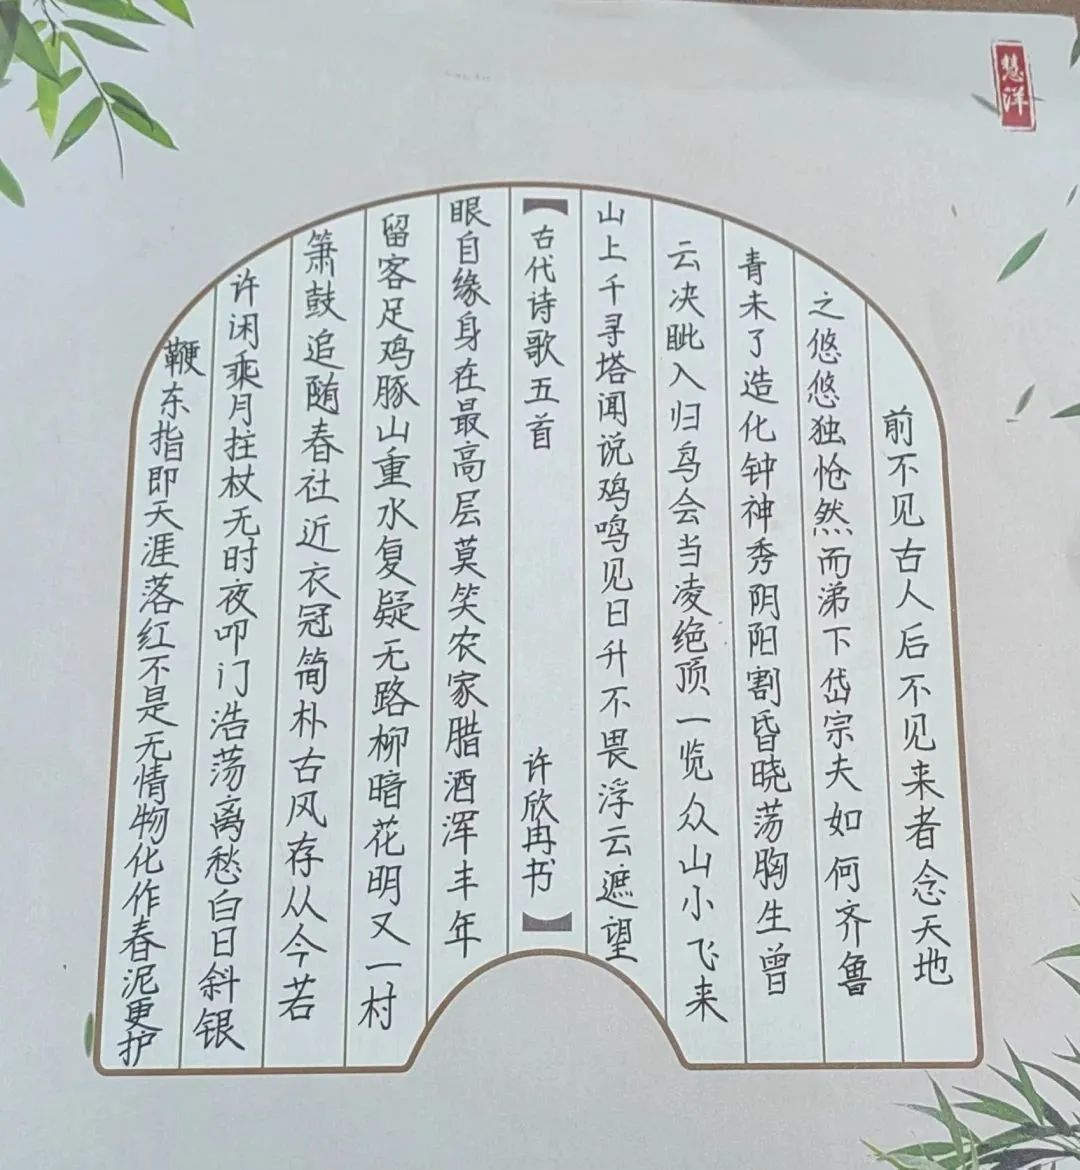 慧洋
前不见古人后不见来者念天地
之悠悠独怆然而涕下岱宗夫如何齐鲁
青未了造化钟神秀阴阳割昏晓荡胸生曾
云决眦入归鸟会当凌绝顶一览众山小飞来
山上千寻塔闻说鸡鸣见日升不畏浮云遮望
【古代诗歌五首 许欣冉书】
眼自缘身在最高层莫笑农家腊酒浑丰年
留客足鸡豚山重水复疑无路柳暗花明又一村
箫鼓追随春社近衣冠简朴古风存从今若
许闲乘月拄杖无时夜叩门浩荡离愁白日斜银
鞭东指即天涯落红不是无情物化作春泥更护